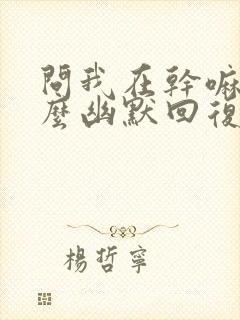 問我在幹嘛
麼幽默回復
楊哲寧